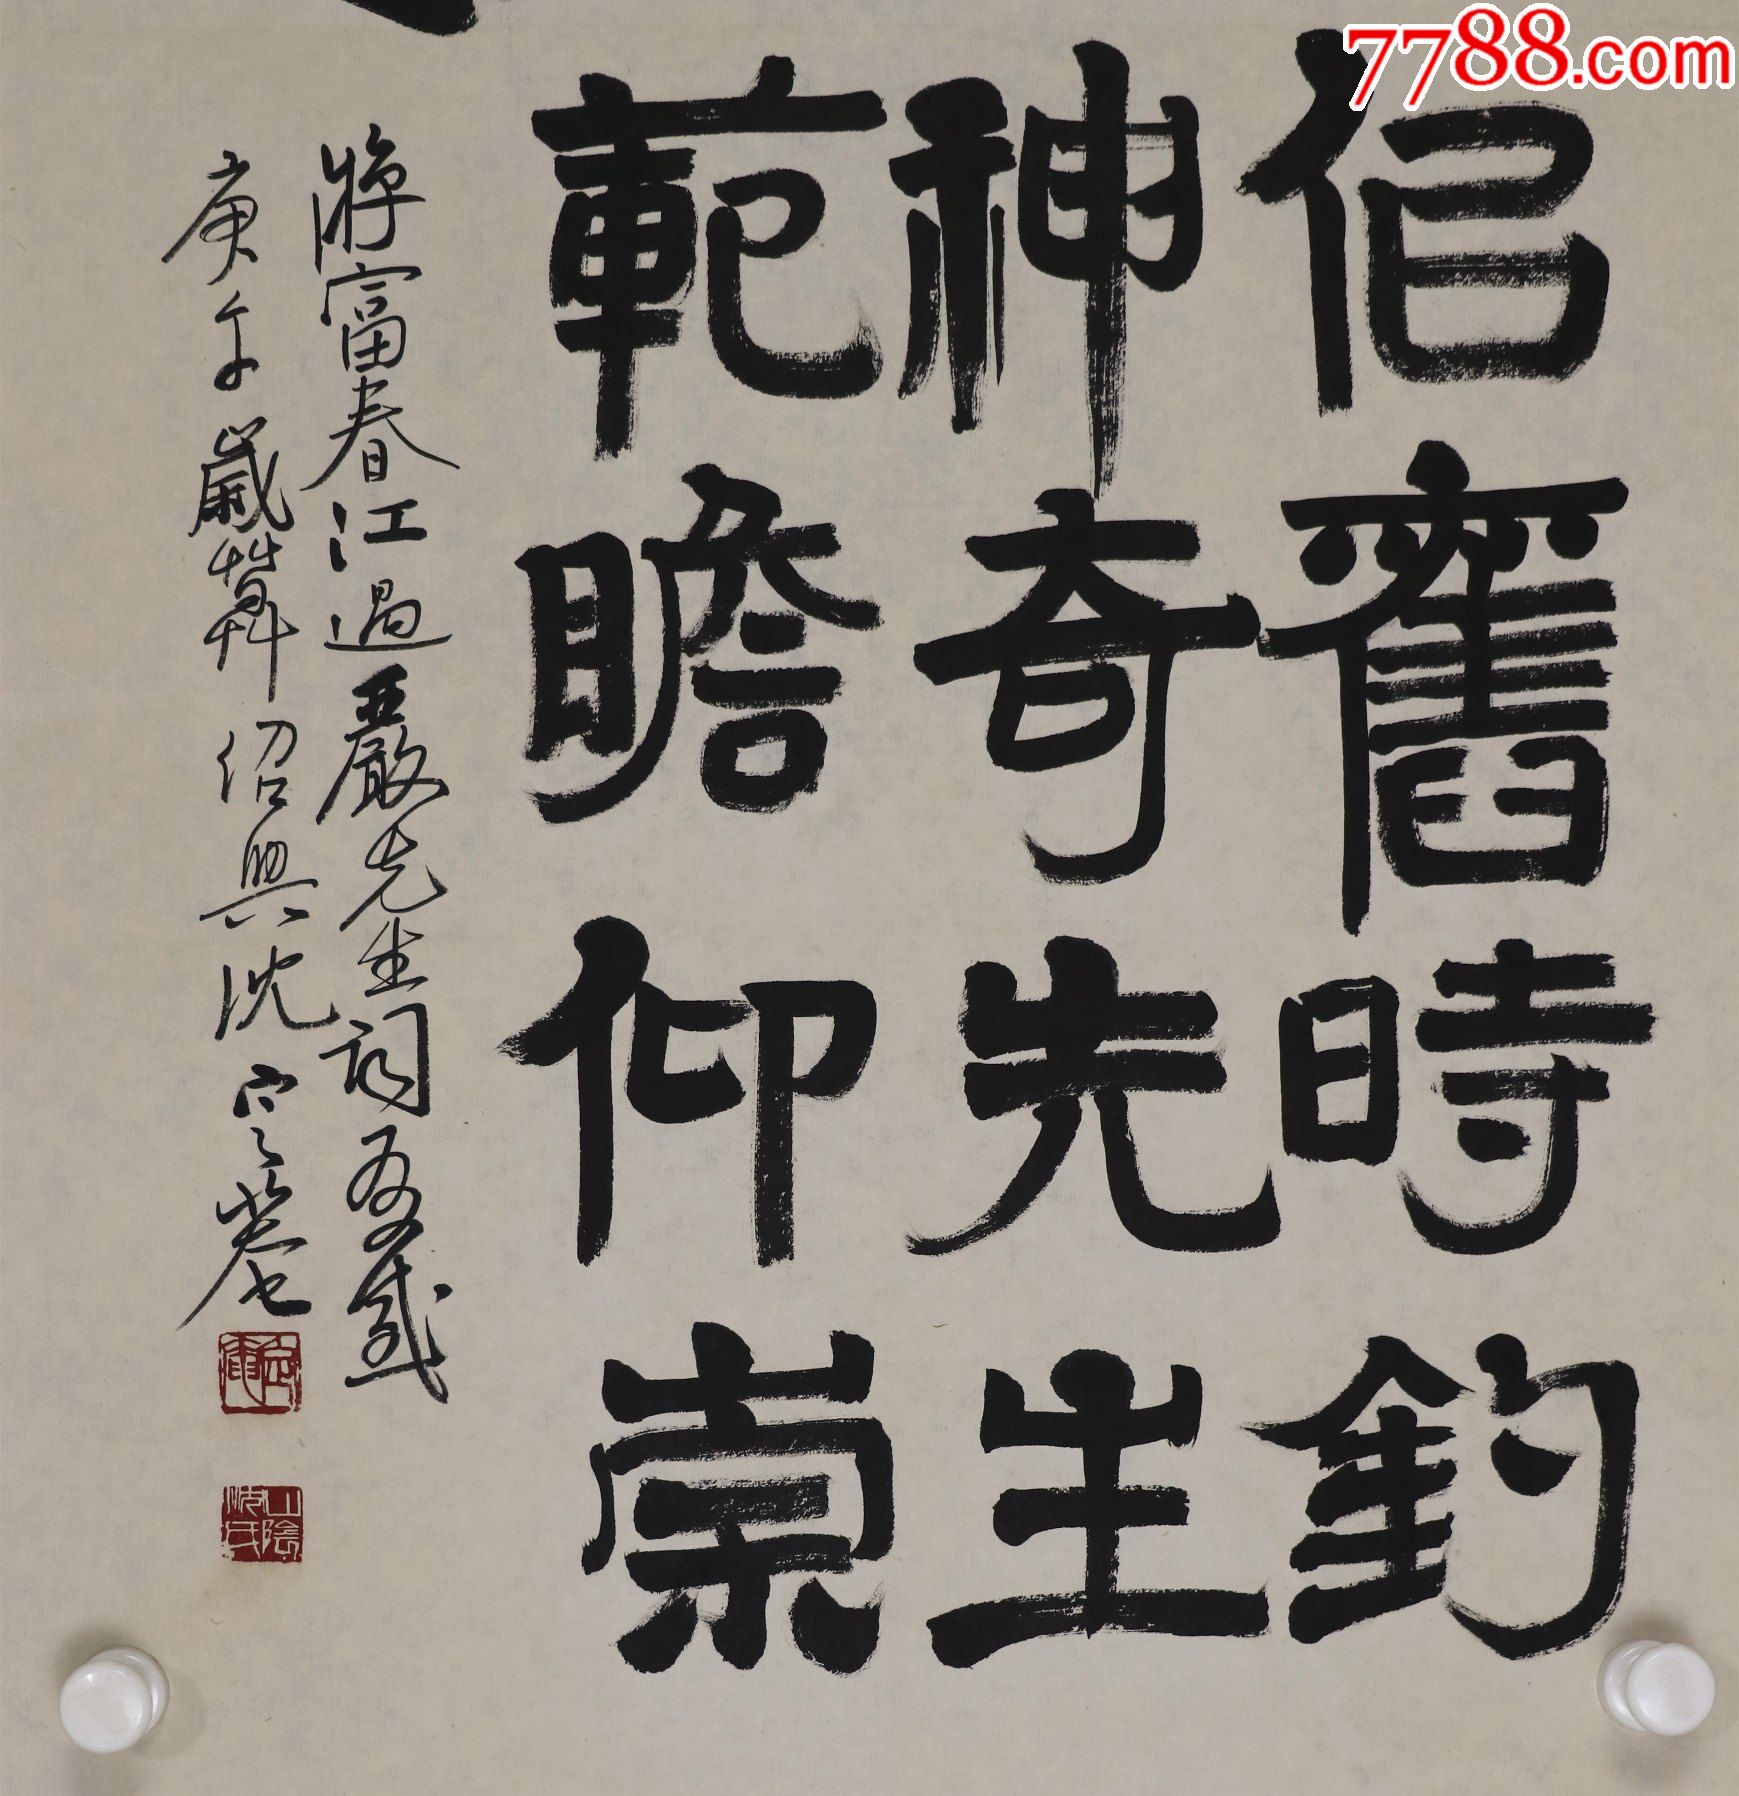 7788.com
似舊時釣
神奇先生
範瞻仰崇
游富春江過嚴先生祠有感
庚午歲莫紹興沈定菴
山陰沈氏